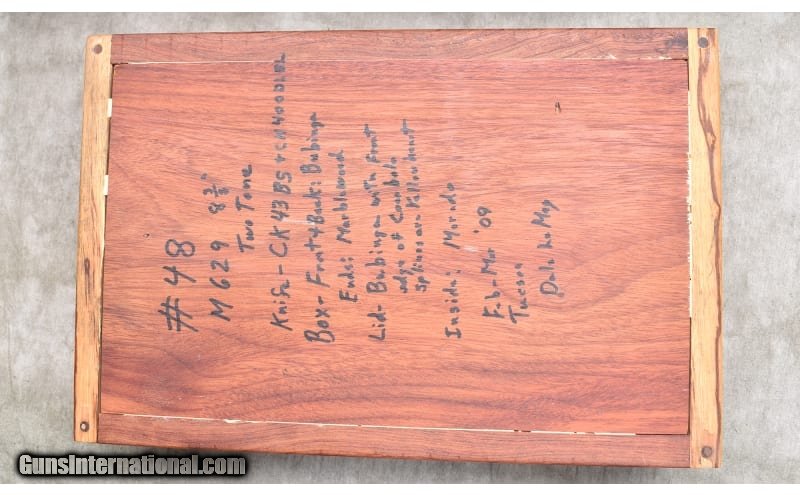 #48
M 629 8 3/8"
Two Tone
Knife - CK43BS +
Box - Front & Back: Bubinga
Ends: Marblewood
Lid - Bubinga with front
edge of
Splines are Yellowheart
Inside: Morado
Feb-Mar '09
Tucson
Dale
GunsInternational.com